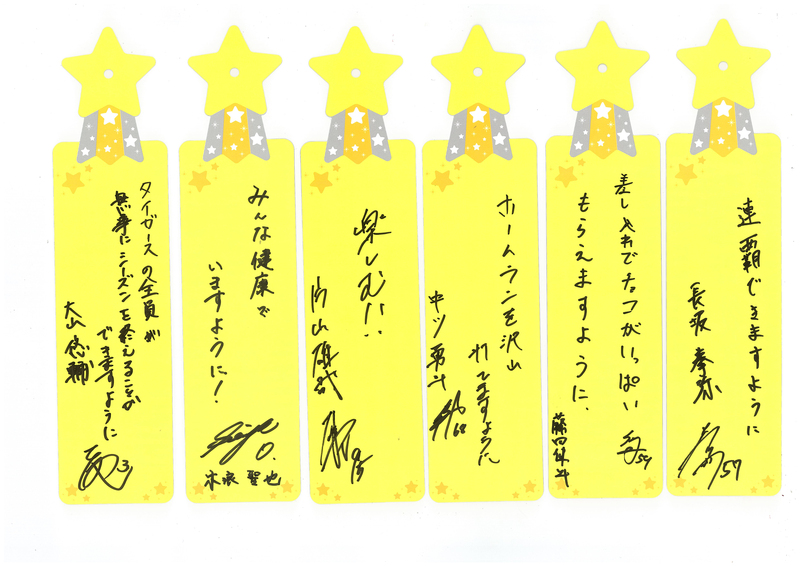 連覇できますように
長坂 拳弥
57
差し入れでチョコがいっぱい
もらえますように、
59
藤田健斗
ホームランを沢山
打てますように
中川勇斗
68
楽しむ!!
片山雄哉
みんな健康で
いますように!
0.
木浪 聖也
タイガースの全員が
無事にシーズンを終えることが
できますように
大山 悠輔
3